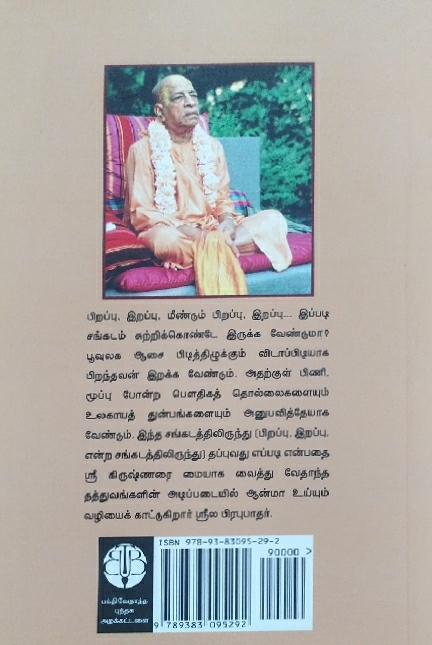 பிறப்பு, இறப்பு, மீண்டும் பிறப்பு, இறப்பு... இப்படி
சங்கடம் சுற்றிக்கொண்டே இருக்க வேண்டுமா?
பூவுலக ஆசை பிடித்திழுக்கும் விடாப்பிடியாக
பிறந்தவன் இறக்க வேண்டும். அதற்குள் பிணி,
மூப்பு போன்ற பௌதிகத் தொல்லைகளையும்
உலகாயத் துன்பங்களையும் அனுபவித்தேயாக
வேண்டும். இந்த சங்கடத்திலிருந்து (பிறப்பு, இறப்பு,
என்ற சங்கடத்திலிருந்து) தப்புவது எப்படி என்பதை
ஸ்ரீ கிருஷ்ணரை மையாக வைத்து வேதாந்த
தத்துவங்களின் அடிப்படையில் ஆன்மா உய்யும்
வழியைக் காட்டுகிறார் ஸ்ரீல பிரபுபாதர்.
பக்திவேதாந்த
புத்தக
அறக்கட்டளை
ISBN 978-93-83095-29-2
90000 >
9 789383 095292